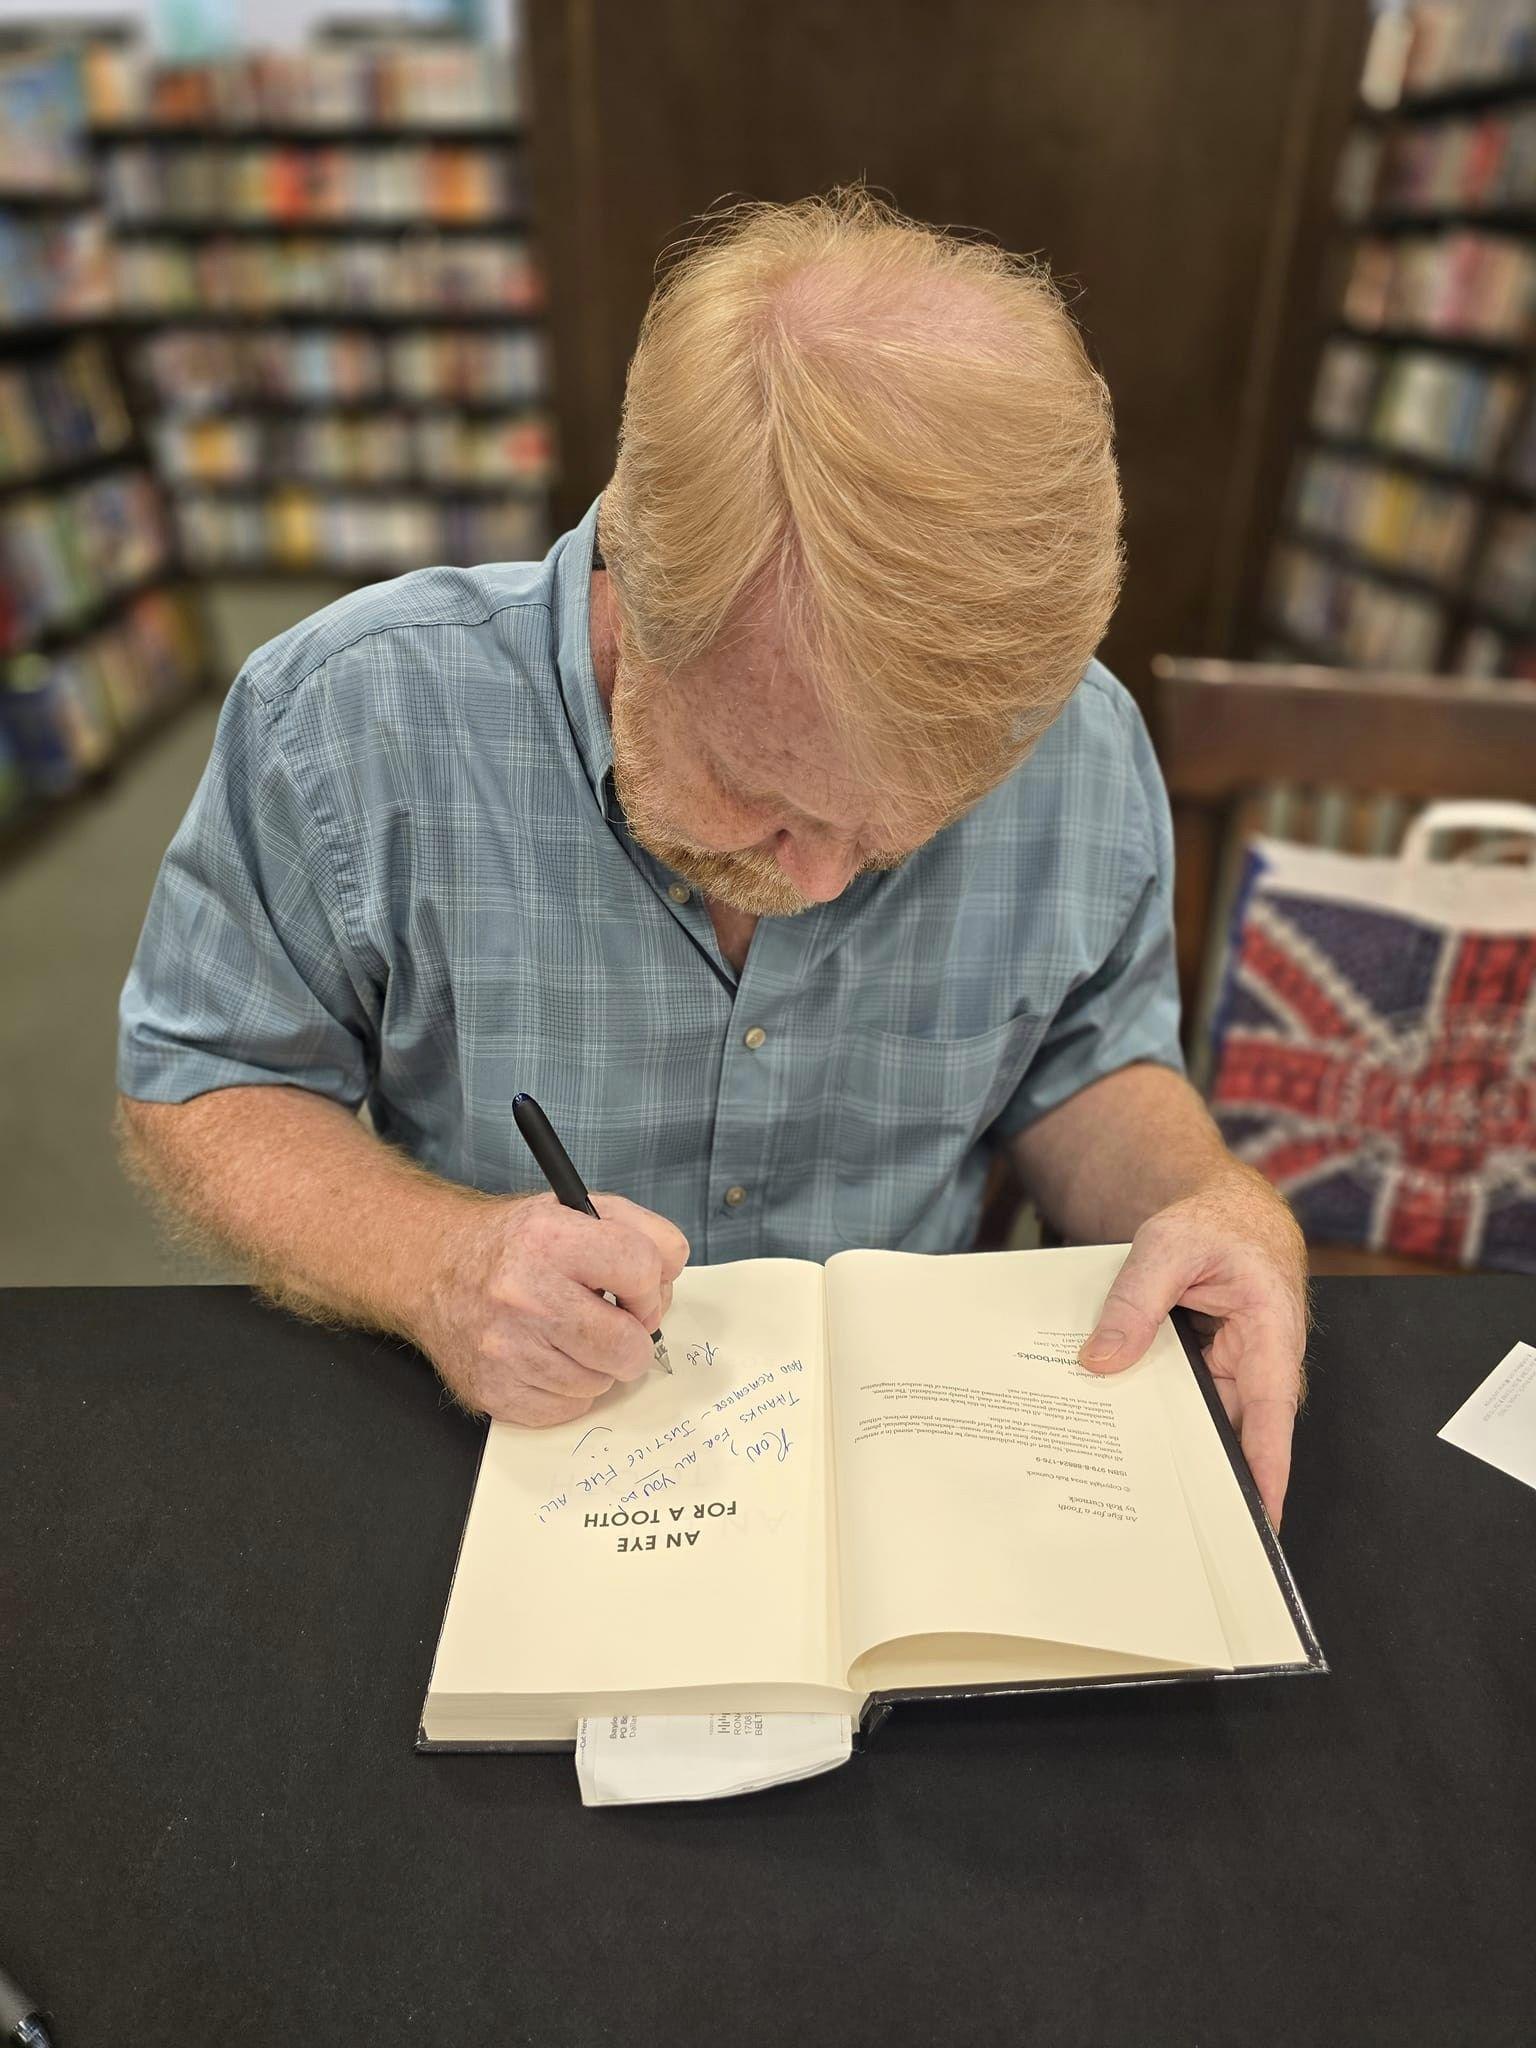 AN EYE
FOR A TOOTH
Ron,
THANKS FOR ALL YOU DO!
AND REMEMBER - JUSTICE FUR ALL!
Rob
An Eye for a Tooth
by Rob Curnock
© Copyright 2024 Rob Curnock
ISBN 979-8-88824-176-9
All rights reserved. No part of this publication may be reproduced, stored in a retrieval
system, or transmitted in any form or by any means—electronic, mechanical, photo-
copy, recording, or any other—except for brief quotations in printed reviews, without
the prior written permission of the author.
This is a work of fiction. All the characters in this book are fictitious, and any
resemblance to actual persons, living or dead, is purely coincidental. The names,
incidents, dialogue, and opinions expressed are products of the author's imagination
and are not to be construed as real.
Published by
oehlerbooks
Cut Here
Baylo
PO Bo
Dallas
RONA
1708
BELT